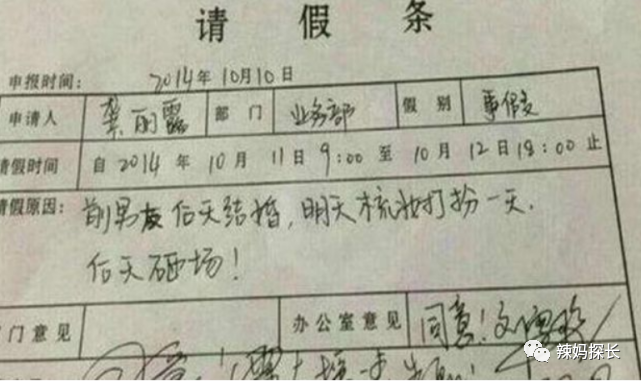 请 假 条
申报时间: 2014年10月10日
申请人 龚丽露 部门 业务部 假别 事假
请假时间 自2014年10月11日9:00至10月12日18:00止
请假原因: 前男友后天结婚,明天梳妆打扮一天.
后天砸场!
门意见 办公室意见 同意!
辣妈探长